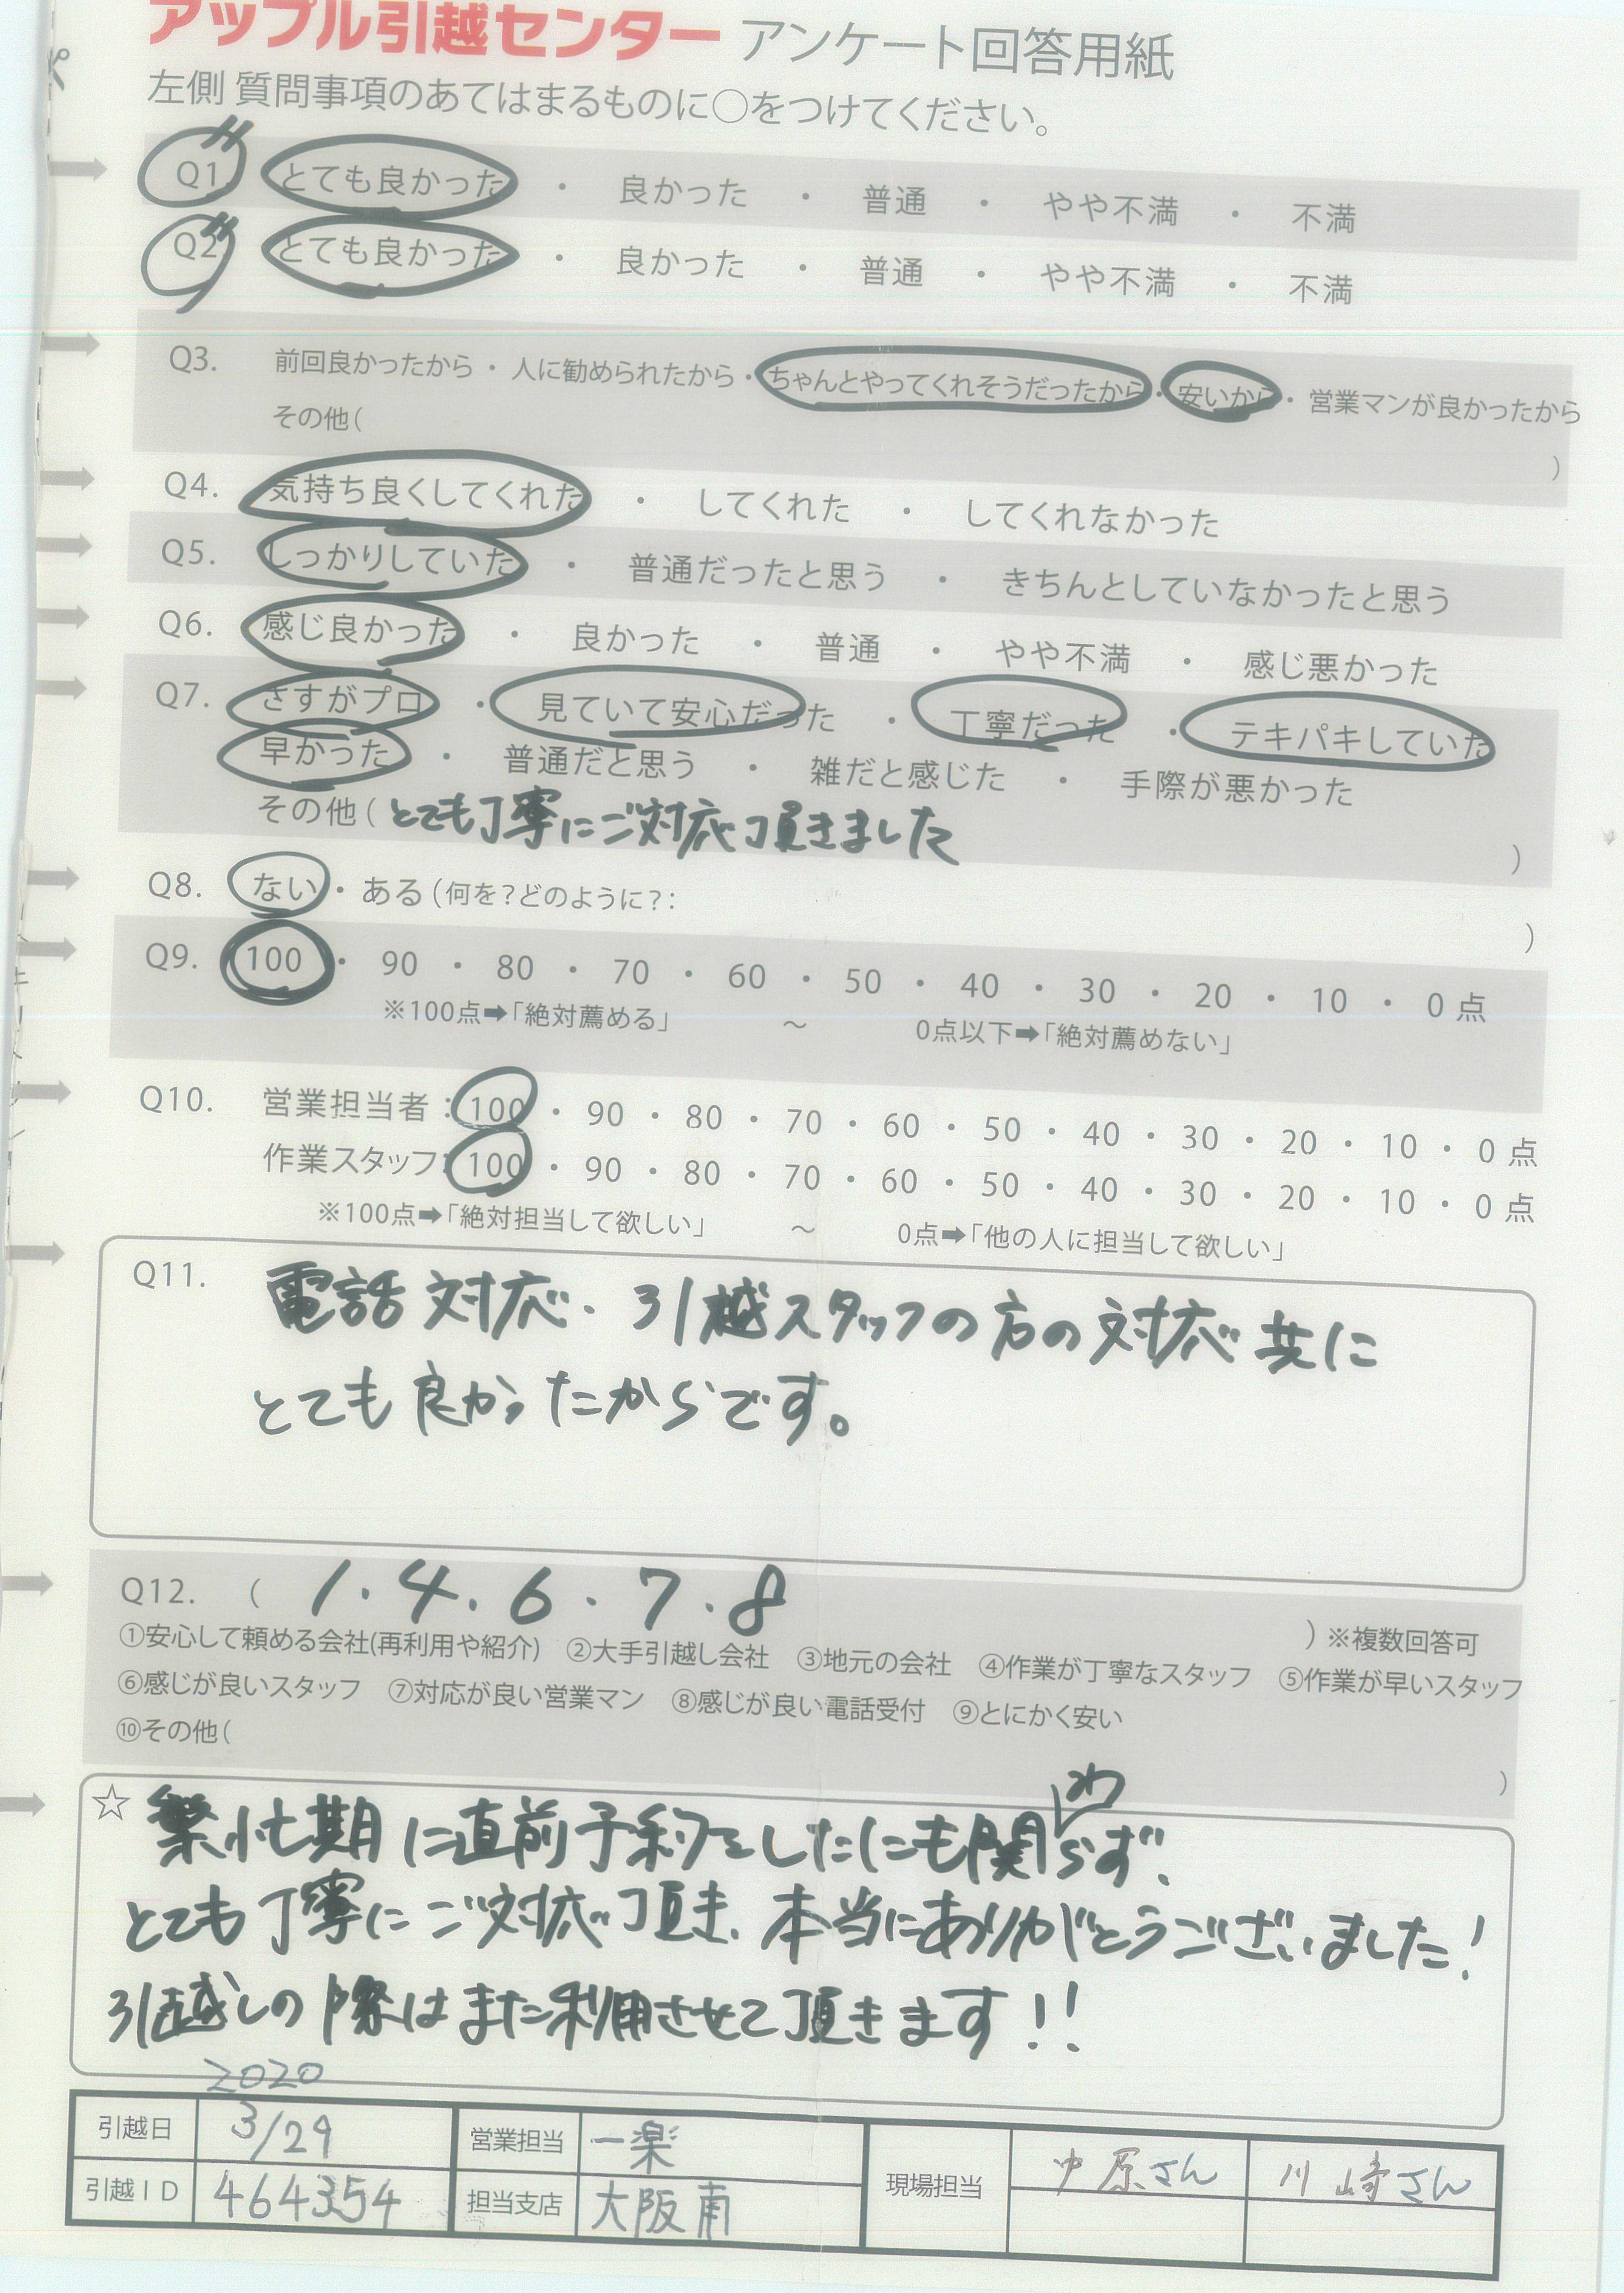 アップル引越センター アンケート回答用紙
左側 質問事項のあてはまるものに○をつけてください。
Q1 とても良かった ・ 良かった ・ 普通 ・ やや不満 ・ 不満
Q2 とても良かった ・ 良かった ・ 普通 ・ やや不満 ・ 不満
Q3. 前回良かったから ・ 人に勧められたから ・ ちゃんとやってくれそうだったから ・ 安いから ・ 営業マンが良かったから
その他( )
Q4. 気持ち良くしてくれた ・ してくれた ・ してくれなかった
Q5. しっかりしていた ・ 普通だったと思う ・ きちんとしていなかったと思う
Q6. 感じ良かった ・ 良かった ・ 普通 ・ やや不満 ・ 感じ悪かった
Q7. さすがプロ ・ 見ていて安心だった ・ 丁寧だった ・ テキパキしていた
早かった ・ 普通だと思う ・ 雑だと感じた ・ 手際が悪かった
その他( とても丁寧にご対応頂きました )
Q8. ない ・ ある (何を?どのように?: )
Q9. 100 ・ 90 ・ 80 ・ 70 ・ 60 ・ 50 ・ 40 ・ 30 ・ 20 ・ 10 ・ 0 点
※100点➡「絶対薦める」 ~ 0点以下➡「絶対薦めない」
Q10. 営業担当者:100 ・ 90 ・ 80 ・ 70 ・ 60 ・ 50 ・ 40 ・ 30 ・ 20 ・ 10 ・ 0 点
作業スタッフ:100 ・ 90 ・ 80 ・ 70 ・ 60 ・ 50 ・ 40 ・ 30 ・ 20 ・ 10 ・ 0 点
※100点➡「絶対担当して欲しい」 ~ 0点➡「他の人に担当して欲しい」
Q11. 電話対応・引越スタッフの方の対応共に
とても良かったからです。
Q12. ( 1.4.6.7.8 ) ※複数回答可
①安心して頼める会社(再利用や紹介) ②大手引越し会社 ③地元の会社 ④作業が丁寧なスタッフ ⑤作業が早いスタッフ
⑥感じが良いスタッフ ⑦対応が良い営業マン ⑧感じが良い電話受付 ⑨とにかく安い
⑩その他( )
☆ 繁忙期に直前予約をしたにも関わらず、
とても丁寧にご対応頂き、本当にありがとうございました!
引越しの際はまた利用させて頂きます!!
2020
引越日 3/29 営業担当 一楽 現場担当 中原さん 川崎さん
引越ID 464354 担当支店 大阪南